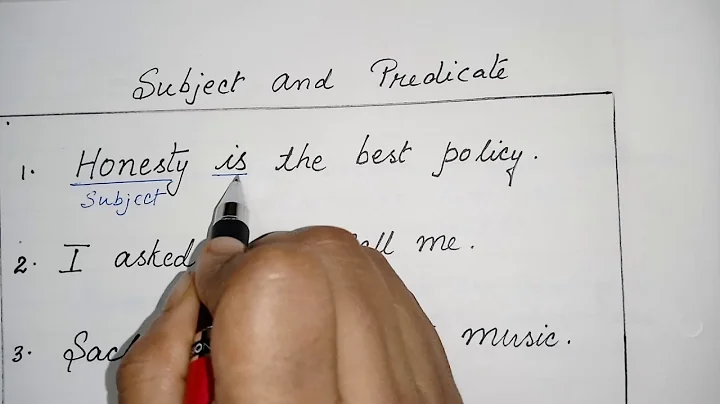 Subject and Predicate
1. Honesty is the best policy.
Subject
2. I asked me.
3. music.